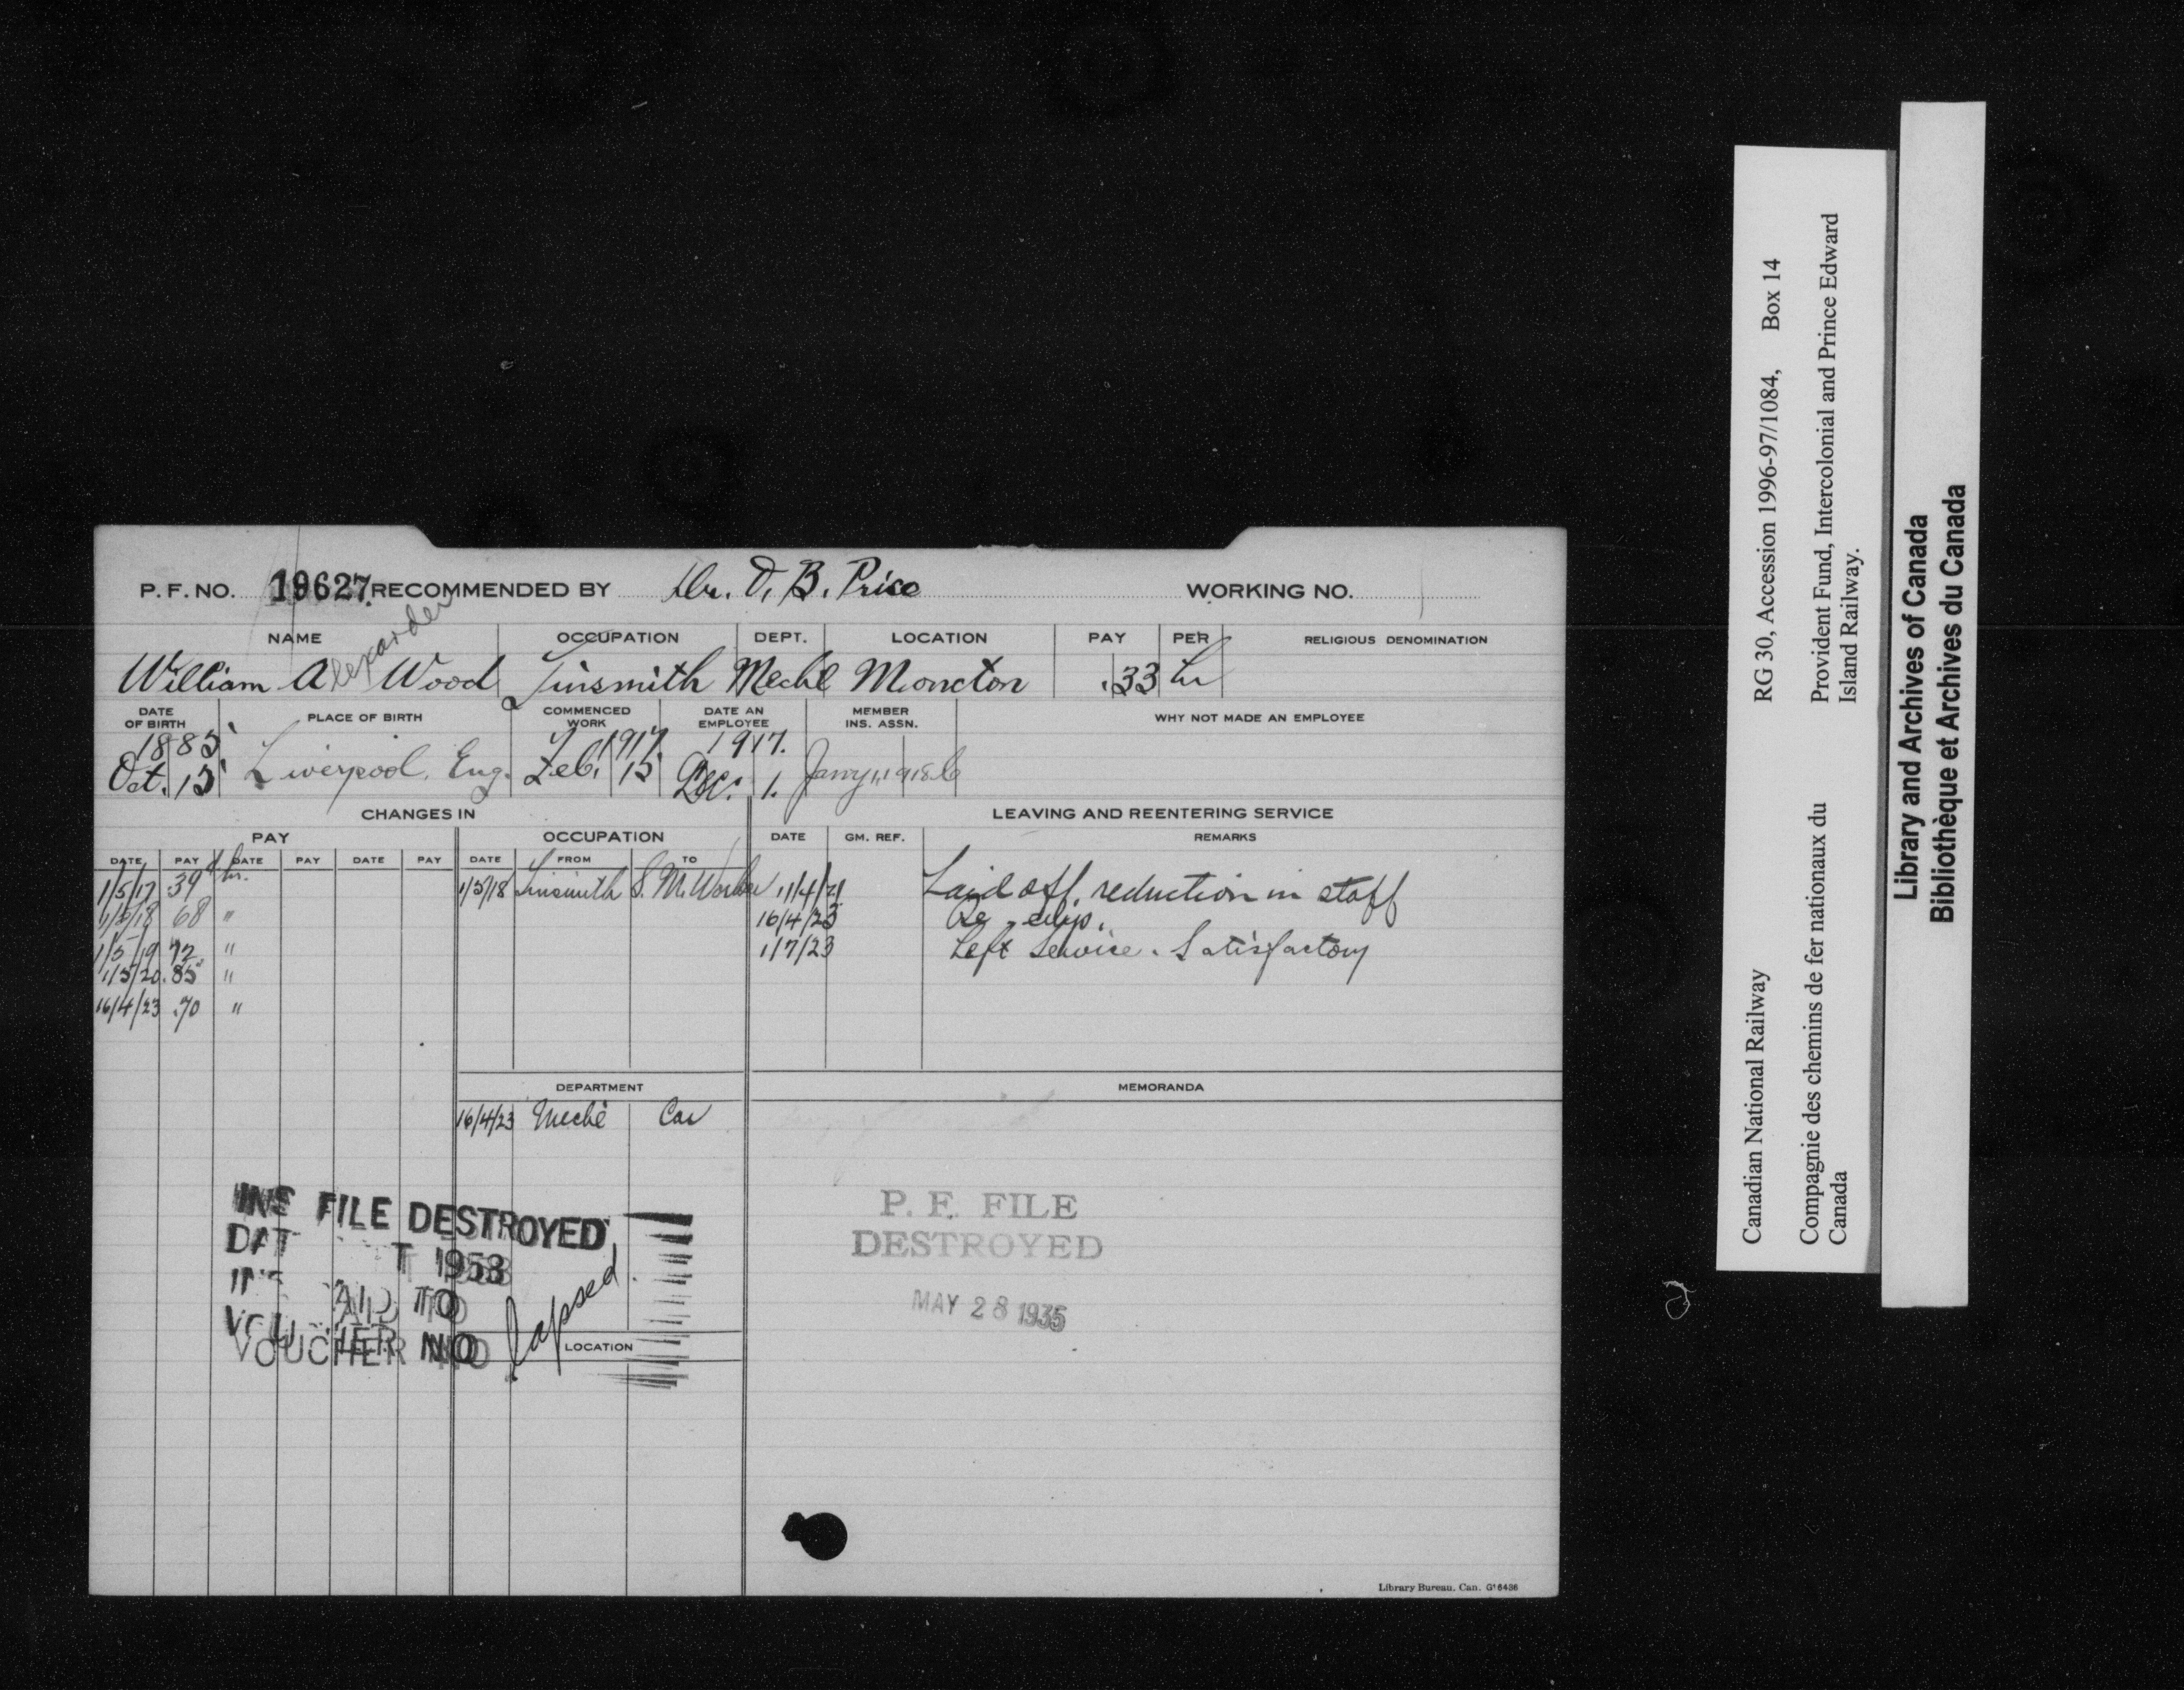 P. F. NO. 19627 RECOMMENDED BY Dr. O. B. Price WORKING NO.
NAME OCCUPATION DEPT. LOCATION PAY PER RELIGIOUS DENOMINATION
William Alexander Wood Tinsmith Mechl Moncton .33 hr
DATE OF BIRTH PLACE OF BIRTH COMMENCED WORK DATE AN EMPLOYEE MEMBER INS. ASSN. WHY NOT MADE AN EMPLOYEE
1885 1917 1917.
Oct. 15 Liverpool, Eng. Feb. 15 Dec. 1.
CHANGES IN LEAVING AND REENTERING SERVICE
PAY OCCUPATION DATE GM. REF. REMARKS
DATE PAY DATE PAY DATE PAY DATE FROM TO
1/5/17 39 hr. 1/5/18 Tinsmith S. M. Worker 11/4/21 Laid off, reduction in staff
1/5/18 68 " 16/4/23 Re-emp.
1/5/19 72 " 1/7/23 Left Service. Satisfactory
1/5/20 .85 "
16/4/23 .70 "
DEPARTMENT MEMORANDA
16/4/23 Mechl Car
INS FILE DESTROYED
DAT T 1953
AID TO
VOUCHER NO
lapsed
LOCATION
P. F. FILE
DESTROYED
MAY 28 1935
Library Bureau. Can. G16436
Canadian National Railway RG 30, Accession 1996-97/1084, Box 14
Compagnie des chemins de fer nationaux du
Canada
Provident Fund, Intercolonial and Prince Edward
Island Railway.
Library and Archives of Canada
Bibliothèque et Archives du Canada